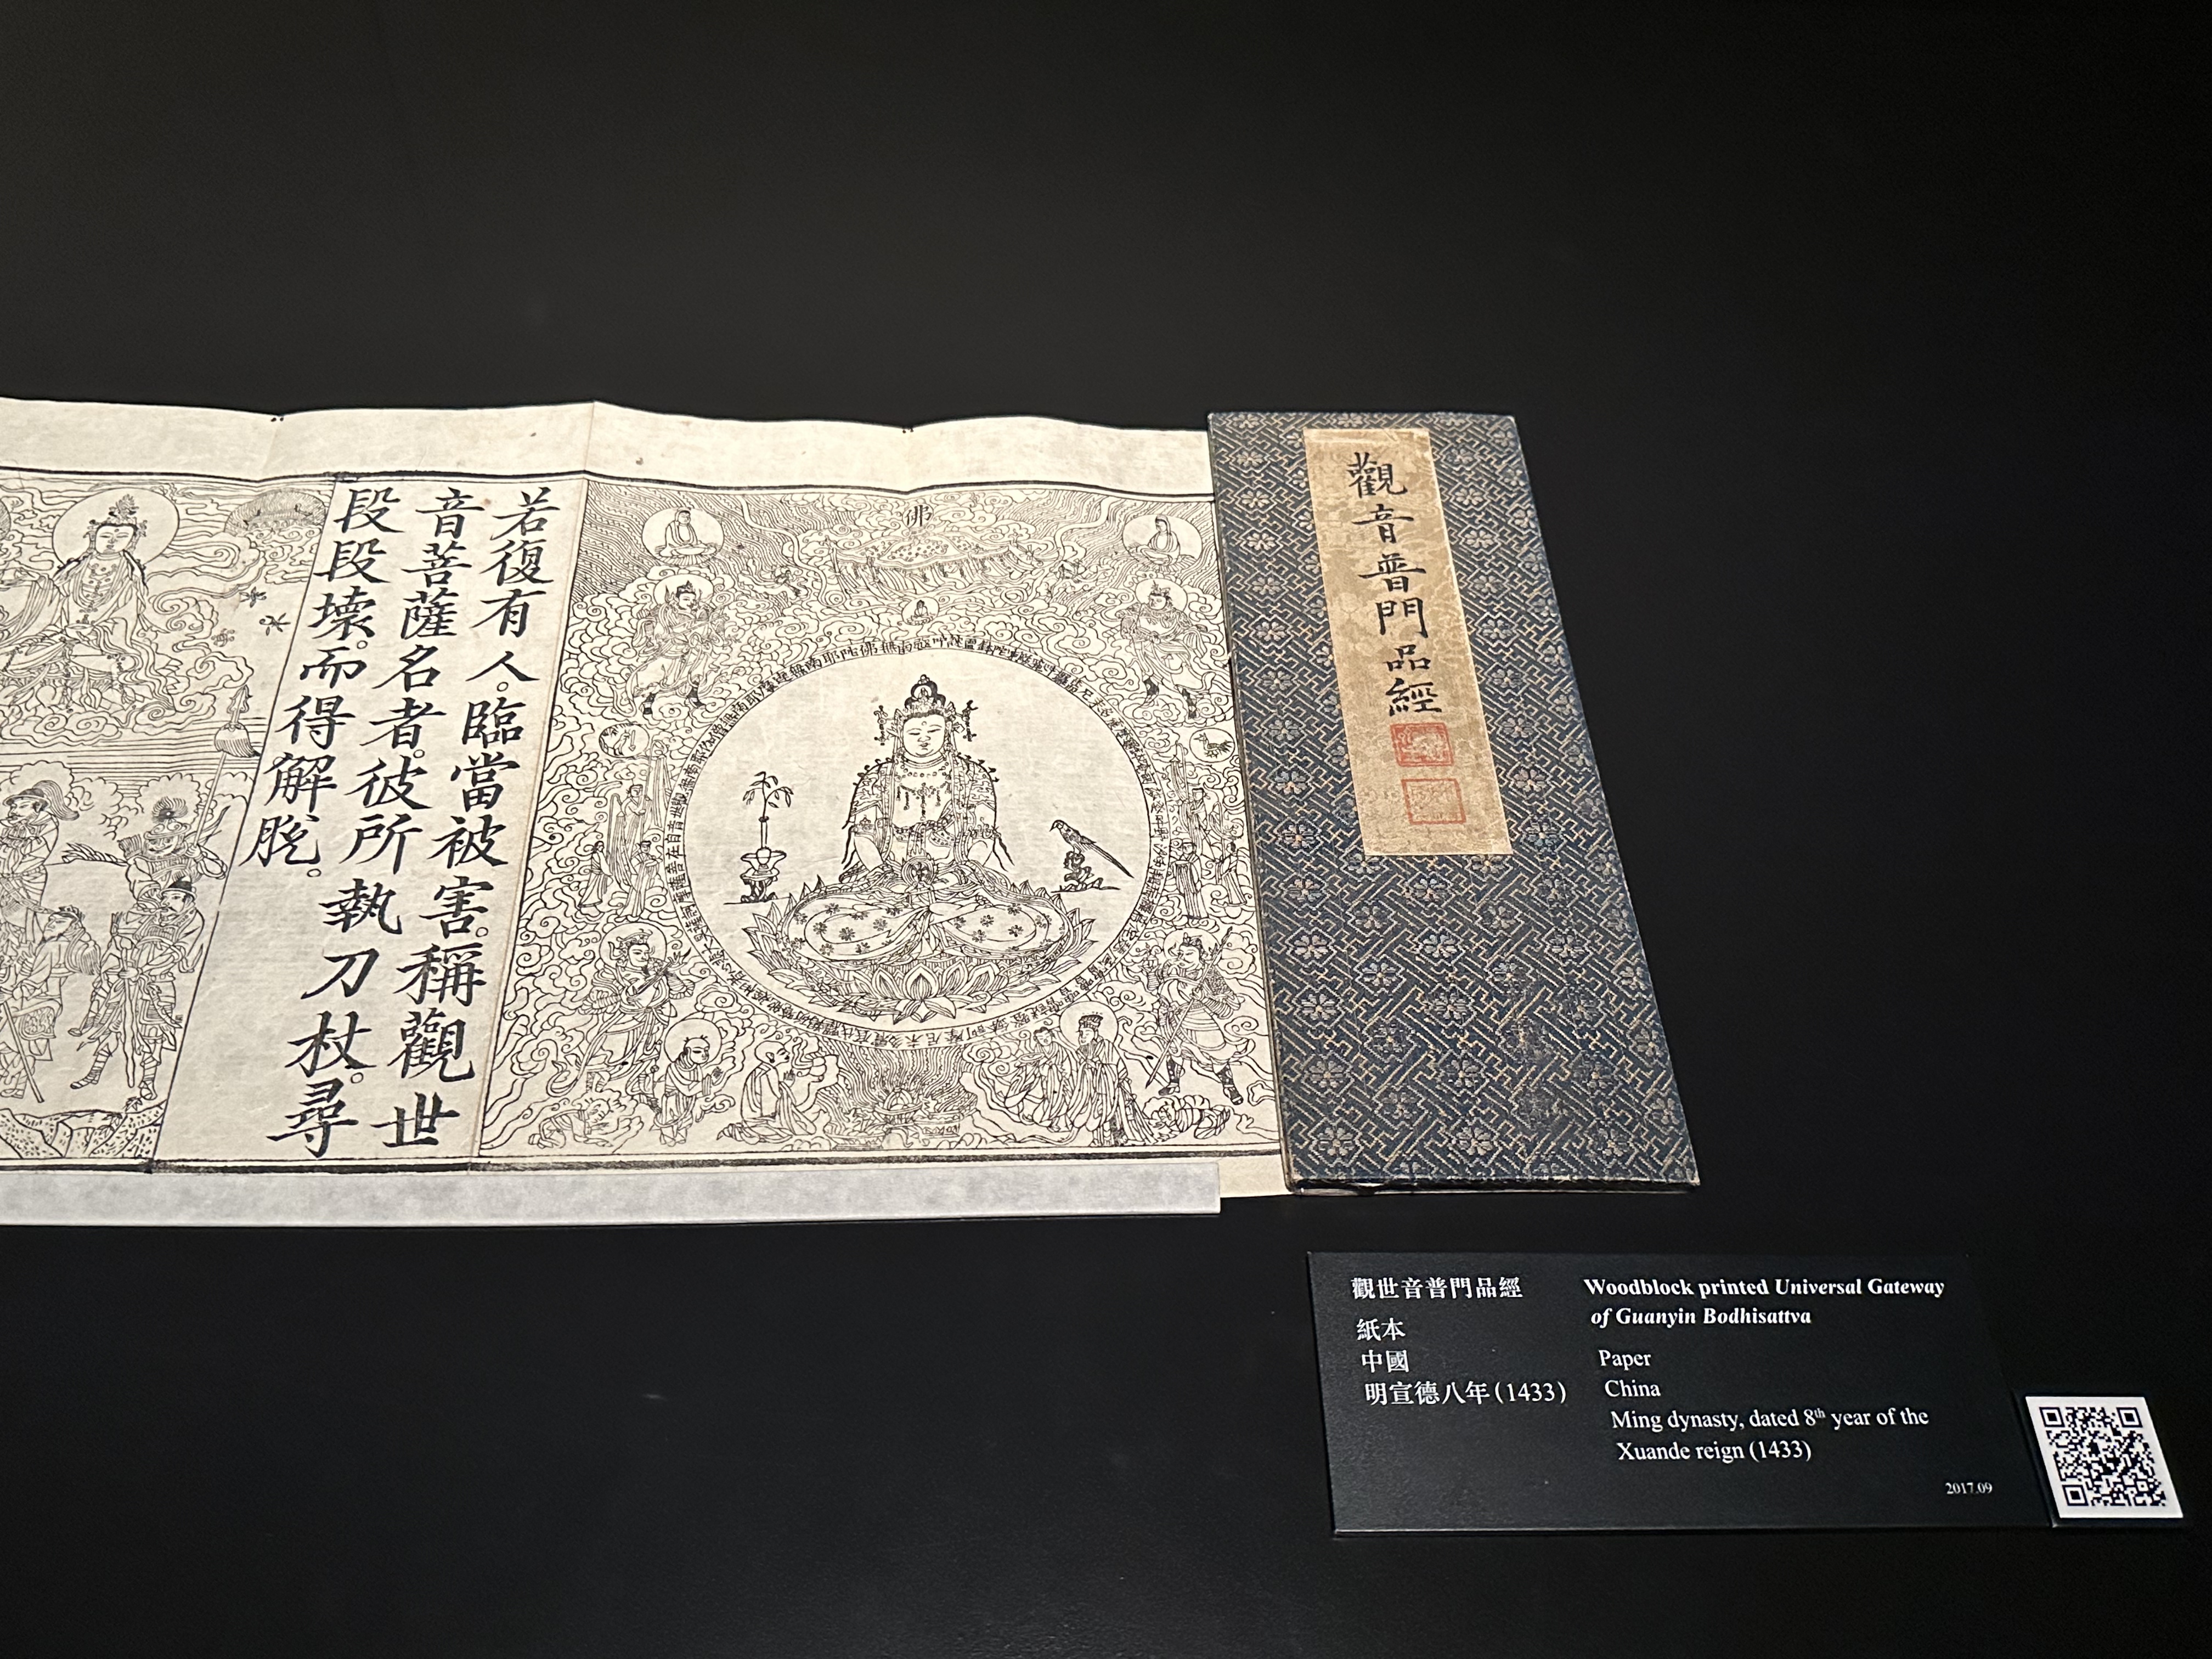 觀音普門品經
佛
若復有人。臨當被害。稱觀世
音菩薩名者。彼所執刀杖。尋
段段壞。而得解脫。
觀世音普門品經
紙本
中國
明宣德八年(1433)
Woodblock printed Universal Gateway
of Guanyin Bodhisattva
Paper
China
Ming dynasty, dated 8th year of the
Xuande reign (1433)
2017.09